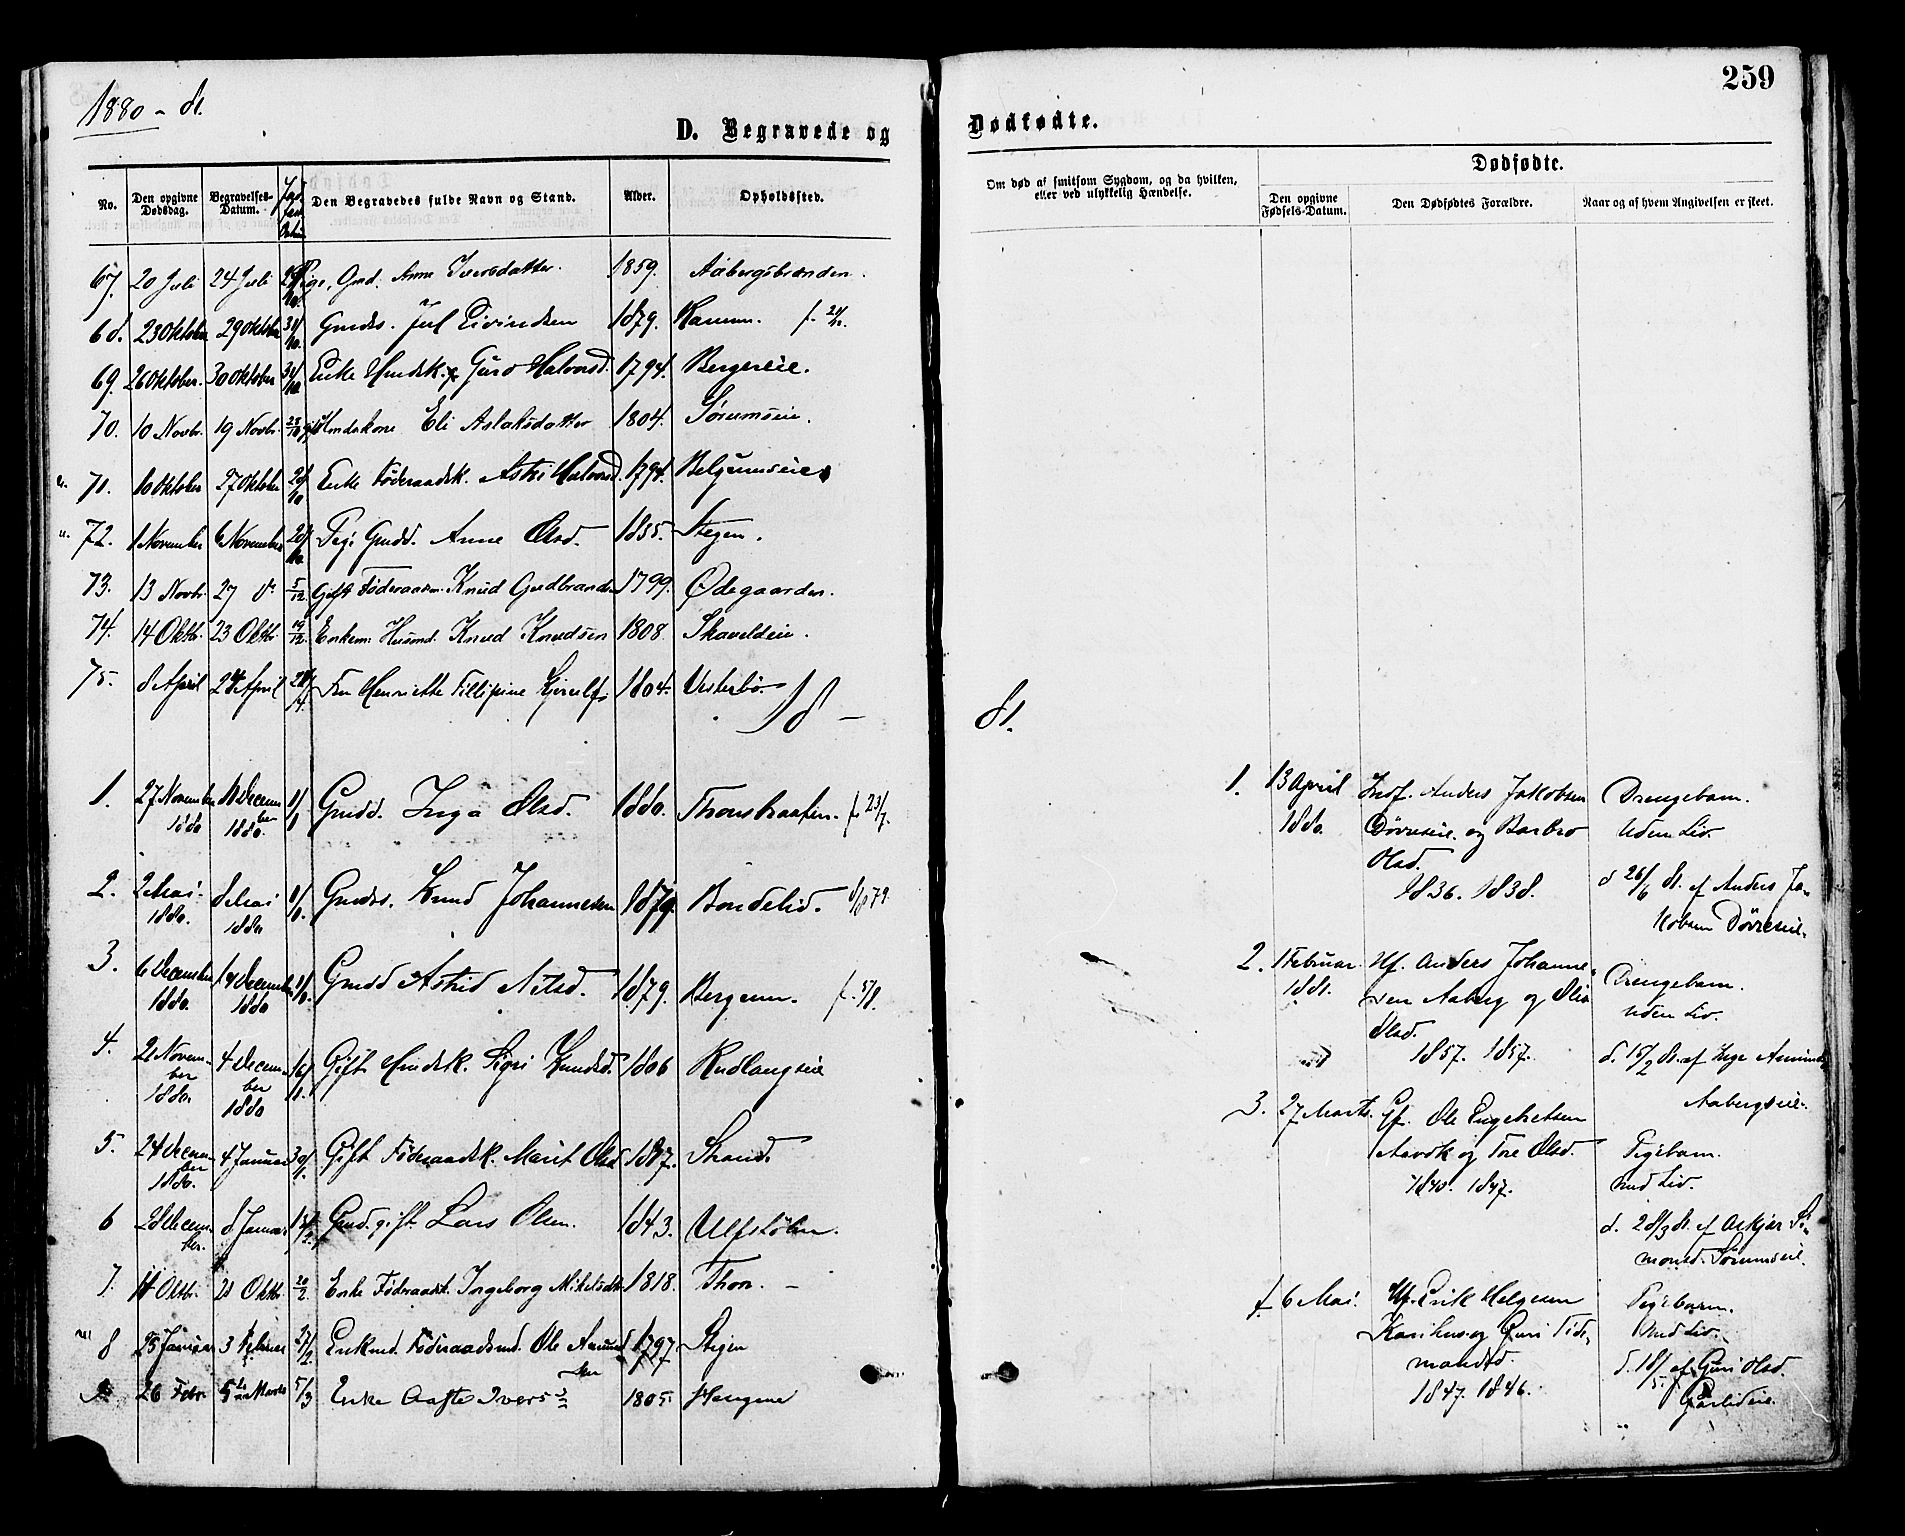 1880 - 81.
D. Begravede og
No.
Den opgivne Dødsdag.
Begravelses-Datum.
Den Begravedes fulde Navn og Stand.
Alder.
Opholdssted.
67. 20 Juli 24 Juli Pige, Gmd. Anne Iversdatter. 1859. Aabergsbraaden.
68. 23 Oktober 29 Oktober 31/10. Gmds. Jul Eivindsen 1879. Hamm. f. 21/11.
69. 26 Oktober. 30 Oktober 31/10 Enke Hmdsk. Guro Halvorsd. 1794. Bergseie.
70. 10 Novbr. 19 Novbr. Hmdskone Eli Aslaksdatter 1804. Sørumseie.
71. 10 Oktober 27 Oktober Enke Føderaadsk. Astri Halvorsd. 1794. Belgumseie
72. 1 November 6 November Pige Gmdd. Anne Olsd. 1855. Stegen.
73. 13 Novbr. 27 do 5/12. Gift Føderaadsm. Knud Gudbrands. 1799. Ødegaarden.
74. 14 Oktbr. 23 Oktbr. 19/12. Enkem. Husmd. Knud Knudsen 1808. Skaveldeie.
75. 8 April 28de April 28/4. Fru Henriette Fillipine Kjerulf. 1804. Vesterbø.
18 –
1. 27 November 1880 11 December 1880. Gmdd. Inga Olsd. 1880. Thonstraaten. f. 23/7.
2. 2 Mai 1880. 8 Mai 1880 Gmds. Knud Johannesen 1879. Bondelid. 8/8 79.
3. 6 December 1880. 14 December 1880 Gmdd Astrid Nilsd. 1879. Bergum. f. 5/8.
4. 21 November 1880. 4 December 1880 16/1. Gift Hmdsk. Sigri Knudsd. 1806 Rudlangseie
5. 24 December 1880. 4 Januar 30/1. Gift Føderaadsk. Marit Olsd 1807. Strand.
6 28 December. 8 Januar Gmd. gift. Lars Olsen. 1843. Ulfstølen.
7. 11 Oktbr. 21 Oktbr. 20/2. Enke Føderaadsk. Ingeborg Mikelsdtr 1818. Thon. –
8 25 Januar 3 Februar 27/2. Enkmd. Føderaadsmd. Ole Amundsen 1797 Stegen
26 Febr. 5te Marts 5/3 Enke Aaste Ivers 1805. Haugene
259
Dødfødte.
Om død af smitsom Sygdom, og da hvilken, eller ved ulykkelig Hændelse.
Dødfødte.
Den opgivne Fødsels-Datum.
Den Dødfødtes Forældre.
Naar og af hvem Angivelsen er skeet.
81.
1. 13 April 1880. Indf. Anders Jakobsen Døvreeie. og Barbro Olsd. 1836. 1838.
Drengebarn. Uden Liv.
d 26/6 81. af Anders Jakobsen Døvreeie.
2. 1 Februar 1881. Uf. Anders Johannesen Aaberg og Olia Olsd. 1857. 1857.
Drengebarn. Uden Liv.
d. 15/2 81. af Inge Amunds. Aabergseie.
3. 27 Marts. Gf. Ole Engebretsen Aavdk og Tore Olsd. 1840. 1847.
Pigebarn. Med Liv.
d. 28/3 81. af Askjær Simonsd. Sørumseie.
6 Mai. Uf. Erik Helgesen Karihus. og Guri Tidemandsd. 1847. 1846.
Pigebarn. Med Liv.
d. 18/5. af Guri Olsd. Garlideie.